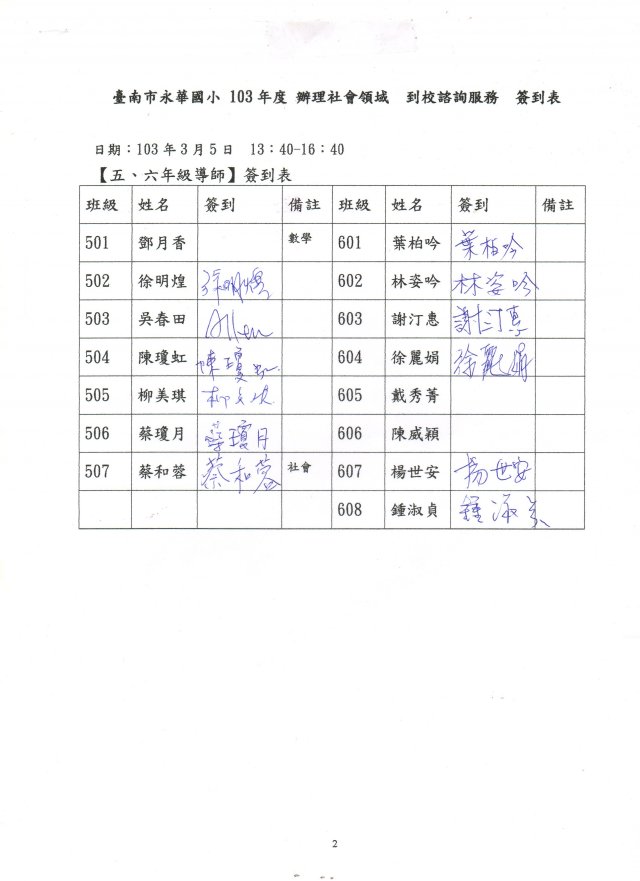 臺南市永華國小 103年度 辦理社會領域 到校諮詢服務 簽到表
日期：103 年 3 月 5 日 13：40-16：40
【五、六年級導師】簽到表
班級 姓名 簽到 備註 班級 姓名 簽到 備註
501 鄧月香 數學 601 葉柏吟 葉柏吟
502 徐明煌 徐明煌 602 林姿吟 林姿吟
503 吳春田 Allen 603 謝汀惠 謝汀惠
504 陳瓊虹 陳瓊虹 604 徐麗娟 徐麗娟
505 柳美琪 柳美琪 605 戴秀菁
506 蔡瓊月 蔡瓊月 606 陳威穎
507 蔡和蓉 蔡和蓉 社會 607 楊世安 楊世安
608 鍾淑貞 鍾淑貞
2